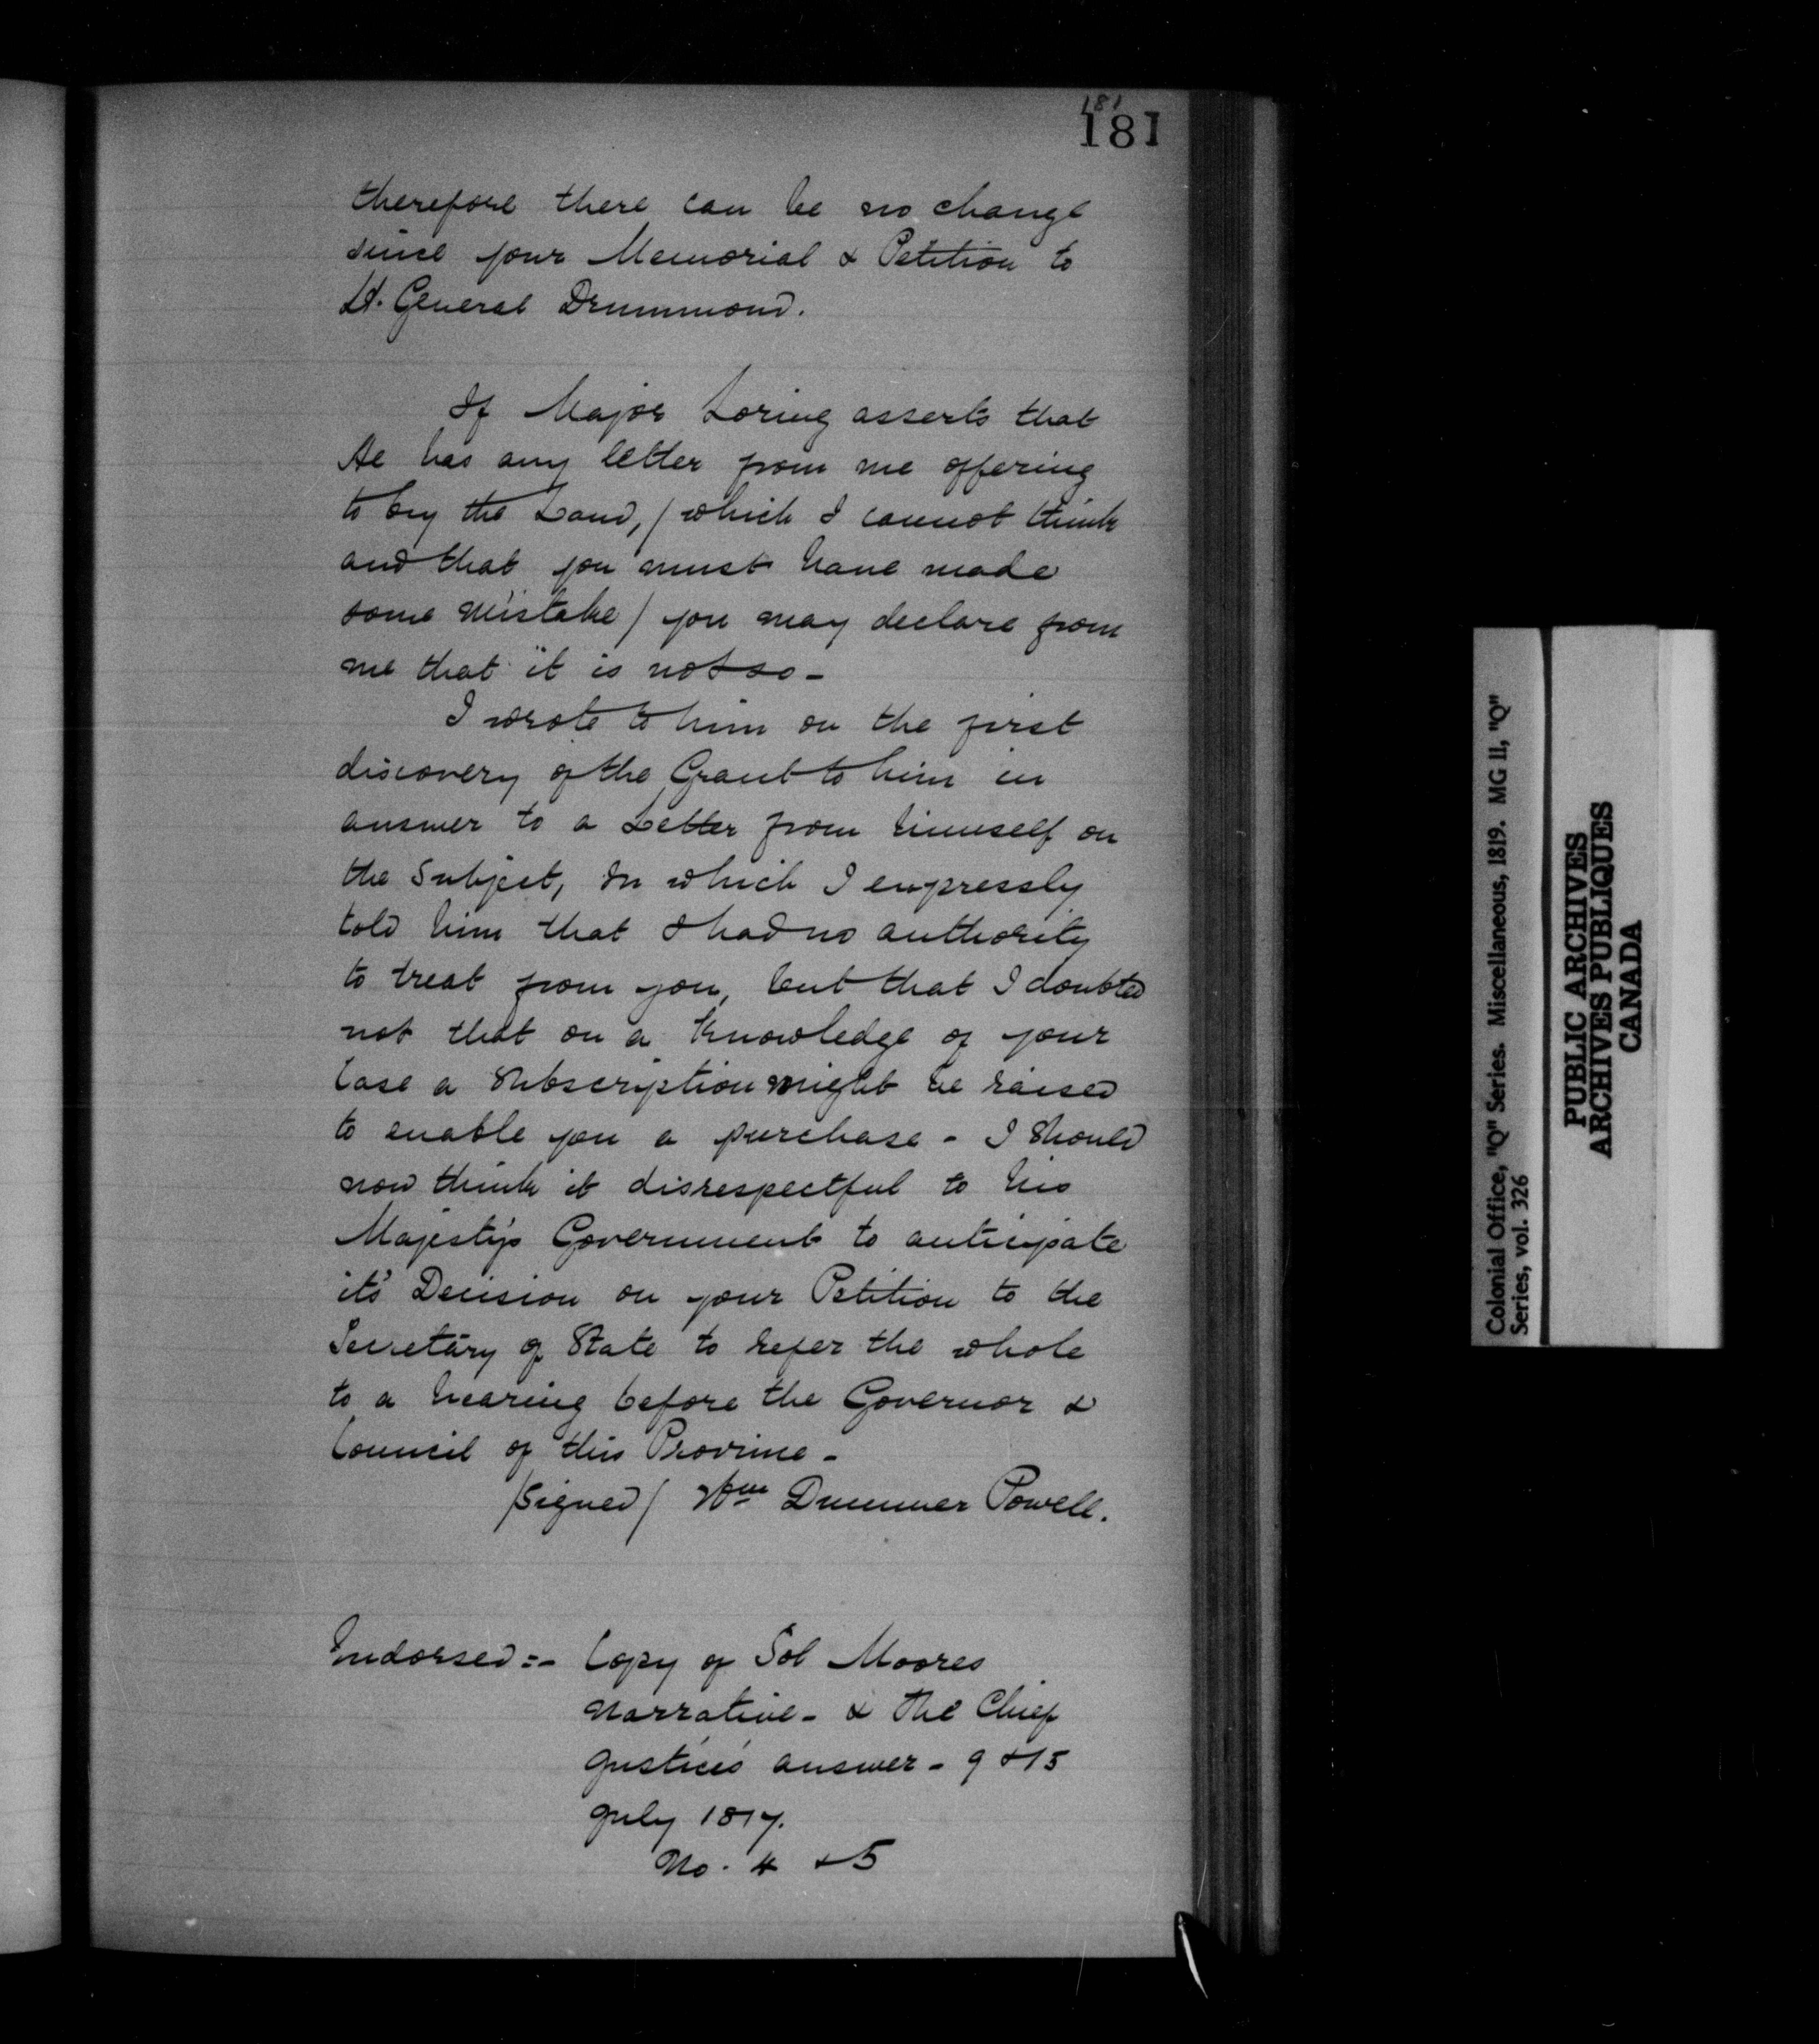 181
181
therefore there can be no change
since your Memorial & Petition to
Lt. General Drummond.
If Major Loring asserts that
He has any letter from me offering
to buy the Land, / which I cannot think
and that you must have made
some mistake / you may declare from
me that it is not so -
I wrote to him on the first
discovery of the Grant to him in
answer to a Letter from himself on
the Subject, in which I expressly
told him that I had no authority
to treat from you, but that I doubted
not that on a knowledge of your
Case a Subscription might be raised
to enable you a purchase - I should
now think it disrespectful to his
Majesty's Government to anticipate
it's Decision on your Petition to the
Secretary of State to refer the whole
to a hearing before the Governor &
Council of this Province -
/signed/ Wm Dummer Powell.
Endorsed :- Copy of Sol Moores
narrative - & The Chief
Justice's answer - 9 & 15
July 1817.
No. 4 & 5
Colonial Office, "Q" Series. Miscellaneous, 1819. MG 11, "Q"
Series, vol. 326
PUBLIC ARCHIVES
ARCHIVES PUBLIQUES
CANADA